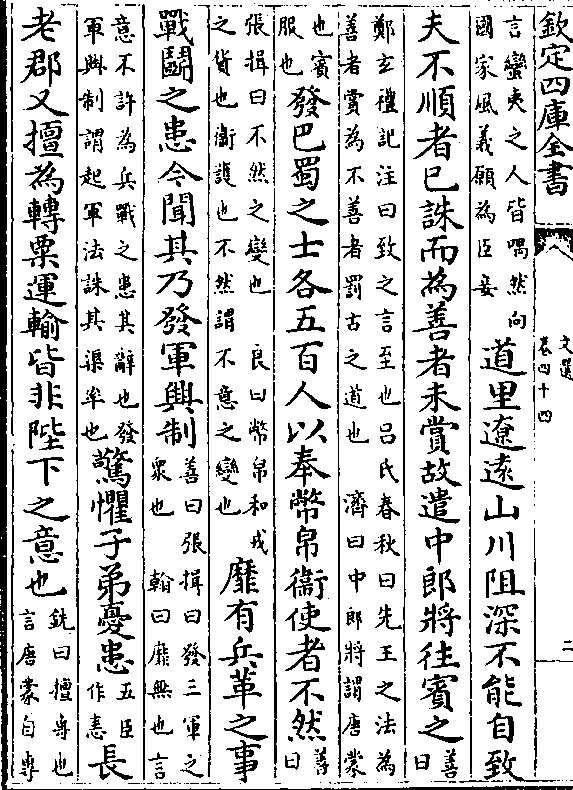 欽定四庫全書
文選
卷四十四
二
言蠻夷之人皆喁然向
國家風義願為臣妾
道里遼逺山川阻深不能自致
夫不順者已誅而為善者未賞故遣中郎將往賓之
善
曰
鄭玄禮記注曰致之言至也吕氏春秋曰先王之法為
善者賞為不善者罰古之道也 濟曰中郎將謂唐蒙
也賓
服也
發巴蜀之士各五百人以奉幣帛衞使者不然
善
曰
張揖曰不然之變也 良曰幣帛和戎
之貨也衞護也不然謂不意之變也
靡有兵革之事
戰鬬之患今聞其乃發軍興制
善曰張揖曰發三軍之
衆也 翰曰靡無也言
意不許為兵戰之患其辭也發
軍興制謂起軍法誅其渠率也
驚懼子弟憂患
五臣
作恚
長
老郡又擅為轉粟運輸皆非陛下之意也
銑曰擅專也
言唐蒙自專